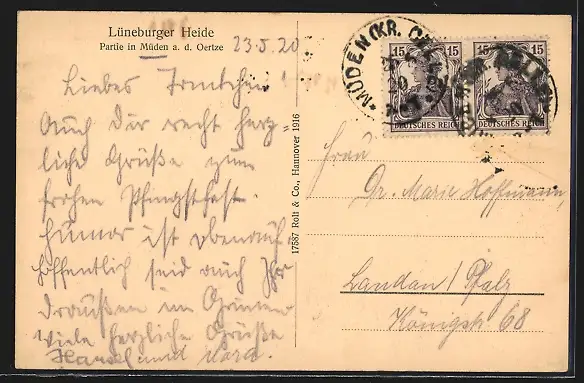 Lüneburger Heide
Partie in Müden a. d. Oertze
23.5.20
Liebes
Auch Dir recht herz=
liche Grüße zum
frohen Pfingstfest.
Humor ist obenauf
hoffentlich seid auch Ihr
draußen im Grünen
Viele herzliche Grüße
und
17587 Rolt & Co., Hannover 1916
MÜDEN (KR.
15 15 15 15
DEUTSCHES REICH
DEUTSCHES REICH
Frau
Dr. Marie Hoffmann,
Landau / Pfalz
Königstr 68